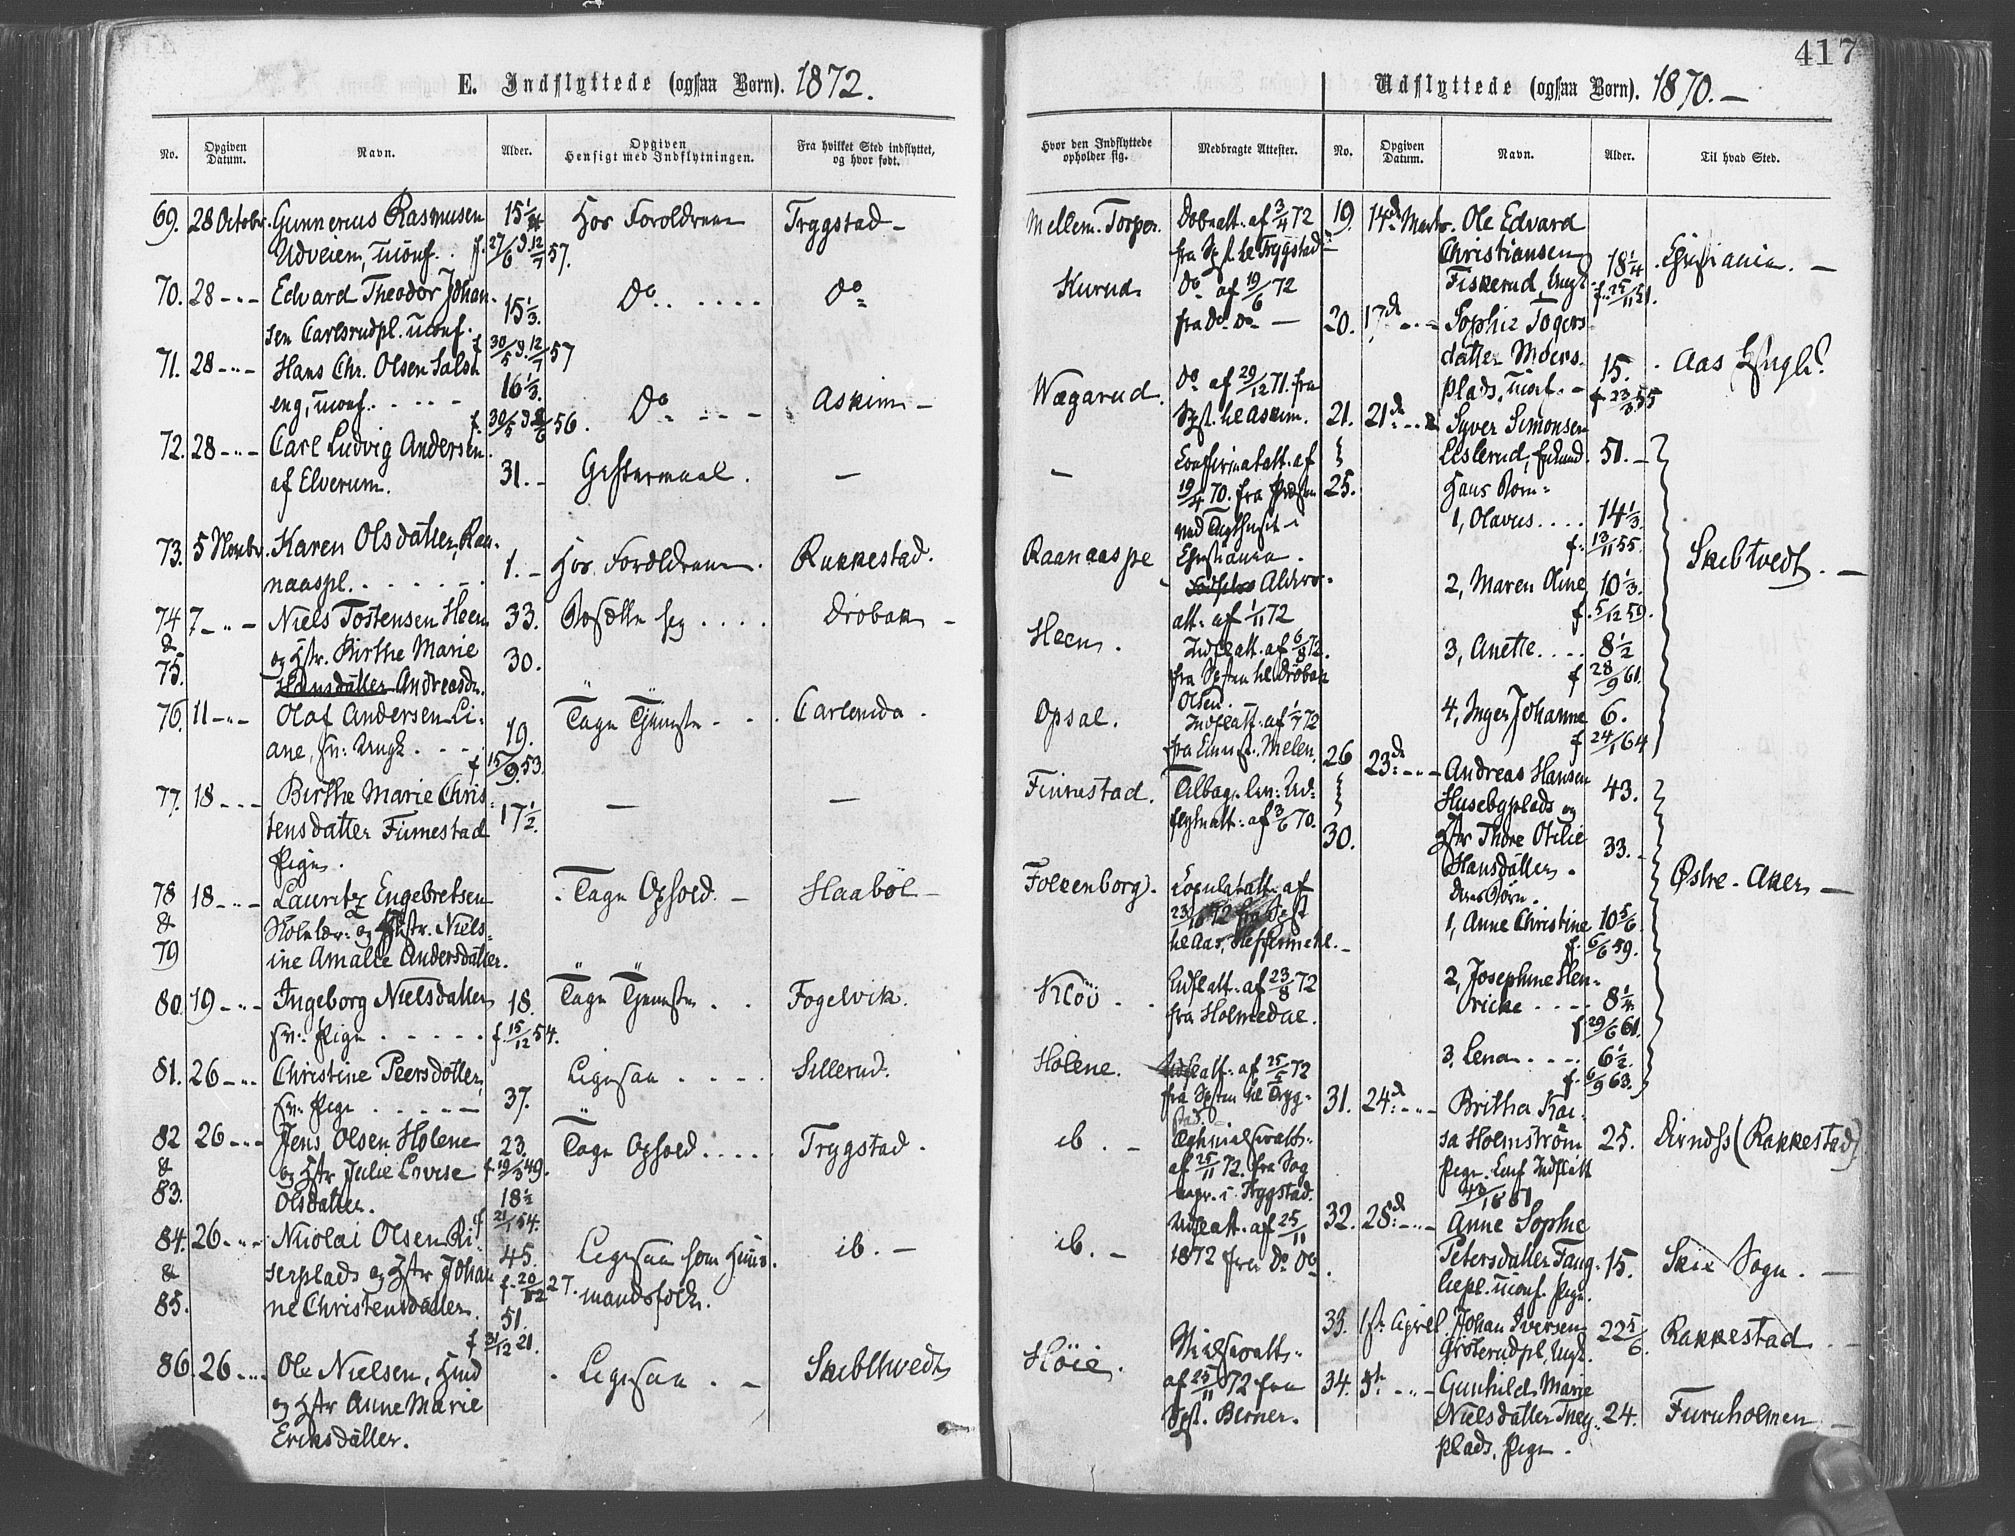 417
E. Indflyttede (ogsaa Børn). 1872.
No.
Opgiven Datum.
Navn.
Alder.
Opgiven Hensigt med Indflytningen.
Fra hvilket Sted indflyttet, og hvor født.
69. 28 Octobr. Gunnerius Rasmusen 15 1/4 Hos Forældrene Trygstad –
Udveien, uconf. f. 27/6 d. 12/7 57.
70. 28 – " – Edvard Theodor Johan- 15 1/3. Do . . . . . Do
sen Carlsrudpl. uconf.
f 30/5 d. 12/7 57
71. 28 – " – Hans Chr. Olsen 16 1/3. Do – – – Askim –
eng, uconf. . . . – f. 30/5 56.
72. 28 – " – Carl Ludvig Andersen 31. – Giftermaal. –
af Elverum.
73. 5 Novbr. Karen Olsdatter, Raa- 1. – Hos Forældrene. Rakkestad.
naaspl. . . . . . .
74 7 – " – Niels Tostensen Heen 33. Bosætte sig . . . . Drøbak –
& og Hstr. Birthe Marie 30.
75. Hansdatter Andreasd.
76. 11 – " – Olaf Andersen Li- 19. Tage Tjeneste – . . Carlanda .
ane, Fv: Ungk. . – . f 15/9 53.
77. 18 – – – Birthe Marie Chris- 17 1/2. – –
tensdatter Finnestad
Pige.
78 18 – " – Lauritz Engebretsen . Tage Ophold. – Haabøl –
& Skolelær: og Hstr. Niels-
79 ine Amalie Andersdatter.
80. 19 – " – Ingeborg Nielsdatter 18. Tage Tjeneste . . Fogelvik.
Fv: Pige . . . . . . f. 15/12 54.
81. 26 – " – Christine Peersdotter, 37. Ligesaa . . . . Sillerud.
Fv: Pige . . . . –
82 26 – " – Jens Olsen Holene 23. Tage Ophold . . . . Trygstad .
& og Hstr Julie Lovise f 19/3 49.
83. Olsdatter. 18 1/2
f 21/1 54.
84. 26 – " – Nicolai Olsen Ri- 45. Ligesaa som Huus- ib. –
& serplads og Hstr Johan f. 20/12 27. mandsfolk.
85. ne Christensdatter 51.
f 31/12 21.
86. 26 – " – Ole Nielsen, Hind . Ligesaa . – Skibthvedt
og Hstr Anne Marie
Eriksdatter.
Hvor den Indflyttede opholder sig.
Medbragte Attester.
Mellem-Torper. Dobsatt. af 3/4 72
fra Spst. til Trygstad
Kurud. Do af 19/6 72
fra do do –
Wægarud. Do af 29/12 71. fra
Spst. til Askim.
– Confirmatatt. af
19/4 70. fra Præsten
ved Tugthuset i
Christiania.
Raanaaspl Alders-
att. af 1/11 72
Heen. Udflatt. af 6/8 72.
fra Spsten til Drøbak
Olsen.
Opsal. Udflatt. af 1/7 72
fra Melen.
Finnestad. Tilbagelev: Ud-
flytnatt: af 3/6 70.
Folkenborg. Copulatatt. af
23/10 72 fra Spst
til Aas,
Kløv . . Udflatt. af 23/8 72
fra Holmedal.
Holene. Udflatt. af 25/5 72
fra Spsten til Tryg-
stad.
ib. – af 25/11 72. fra Sog
nepr. i Trygstad.
ib. – Udflatt. af 25/11
1872 fra Do Do
Høie. af 25/11 72 fra
Spst. Berner.
Udflyttede (ogsaa Børn). 1870. –
No.
Opgiven Datum.
Navn.
Alder.
Til hvad Sted.
19. 14d Marts. Ole Edvard
Christiansen 18 1/4 . Christiania. –
Fiskerud, Ungk f. 25/11 51.
20. 17d – " – Sophie Togers-
datter Moers- 15. . Aas
plads, uconf. – f 23/3 55
21. 21d – " – Syver Simonsen
Eislerud, 51. –
25. Hans Børn:
1, Olavus . . . . 14 1/3.
f. 13/11 55.
2, Maren Oline 10 1/3. Skibtvedt. –
f. 5/12 59.
3, Anette . . . . 8 1/2
f 28/9 61.
4, Inger Johanne 6.
f 24/1 64
26 23d – " – Andreas Hansen 43.
Husebyplads og
30. Hstr Thore Otilie 33. –
Hansdatter.
deres Børn. Østre-Aker –
1, Anne Christine 10 5/6.
f. 6/6 59.
2, Josephine Hen-
ricke . . – . 8 1/4.
f. 29/6 61.
3, Lena . . – . 6 1/2.
f. 6/9 63.
31. 24d – " – Britha Kai-
sa Holmstrøm 25. (Rakkestad)
Pige. Indflatt
43/1861
32. 28d – " – Anne Sophie
Petersdatter Tang- 15. Skie Sogn. –
liepl. uconf. Pige.
33. 1ste April Johan Iversen 22 5/6. Rakkestad . –
Grøterudpl, Ungk.
34. 5te – " – Gunhild Marie
Nielsdatter 24. Furuholmen –
plads, Pige –